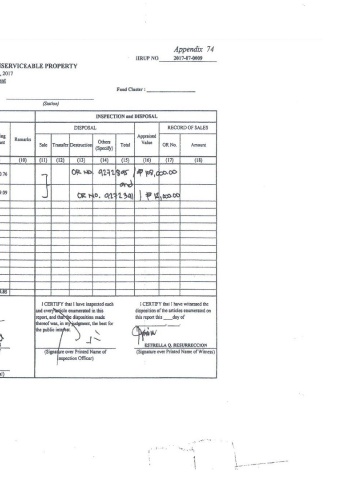 Appendix 74
IIRUP NO. 2017-07-0009
USERVICEABLE PROPERTY
, 2017
Fund Cluster :
(Station)
INSPECTION and DISPOSAL
DISPOSAL
RECORD OF SALES
Remarks Sale Transfer Destruction Others (Specify) Total Appraised Value OR No. Amount
(10) (11) (12) (13) (14) (15) (16) (17) (18)
OR NO. 9272895 /
and
OR NO. 9272391 /
I CERTIFY that I have inspected each
and every article enumerated in this
report, and that the disposition made
thereof was, in my judgment, the best for
the public interest.
(Signature over Printed Name of
Inspection Officer)
I CERTIFY that I have witnessed the
disposition of the articles enumerated on
this report this ___day of
ESTRELLA Q. RESURRECCION
(Signature over Printed Name of Witness)